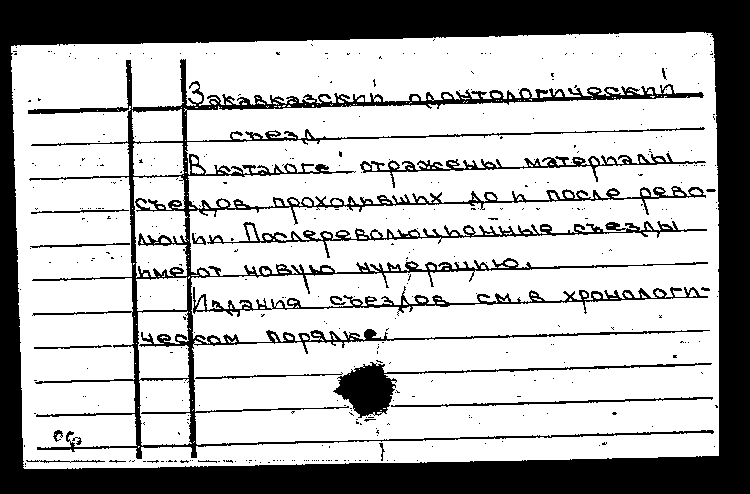 Закавказский одонтологический
съезд.
В каталоге отражены материалы
съездов, проходивших до и после рево-
люции. Послереволюционные съезды
имеют новую нумерацию.
Издания съездов см. в хронологи-
ческом порядке.
оф